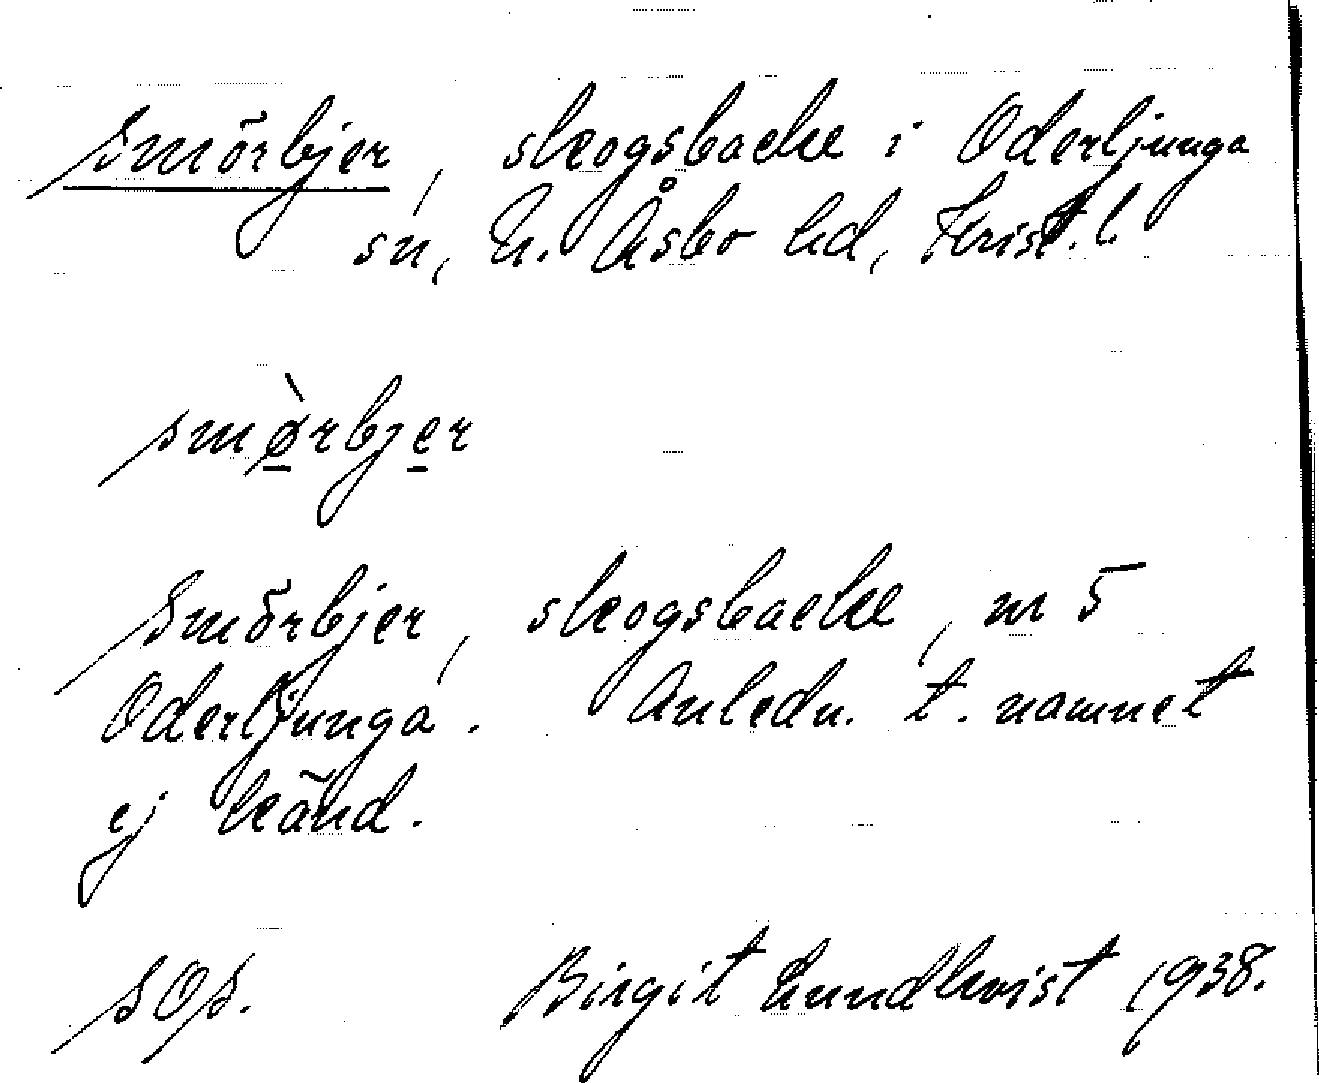 Smörbjer, skogsbacke i Oderljunga
sn, N. Åsbo hd, Krist. l.
smø̀rbjer
Smörbjer, skogsbacke, nr 5
Oderljunga. Anledn. t. namnet
ej känd.
SOS. Birgit Lundkvist 1938.